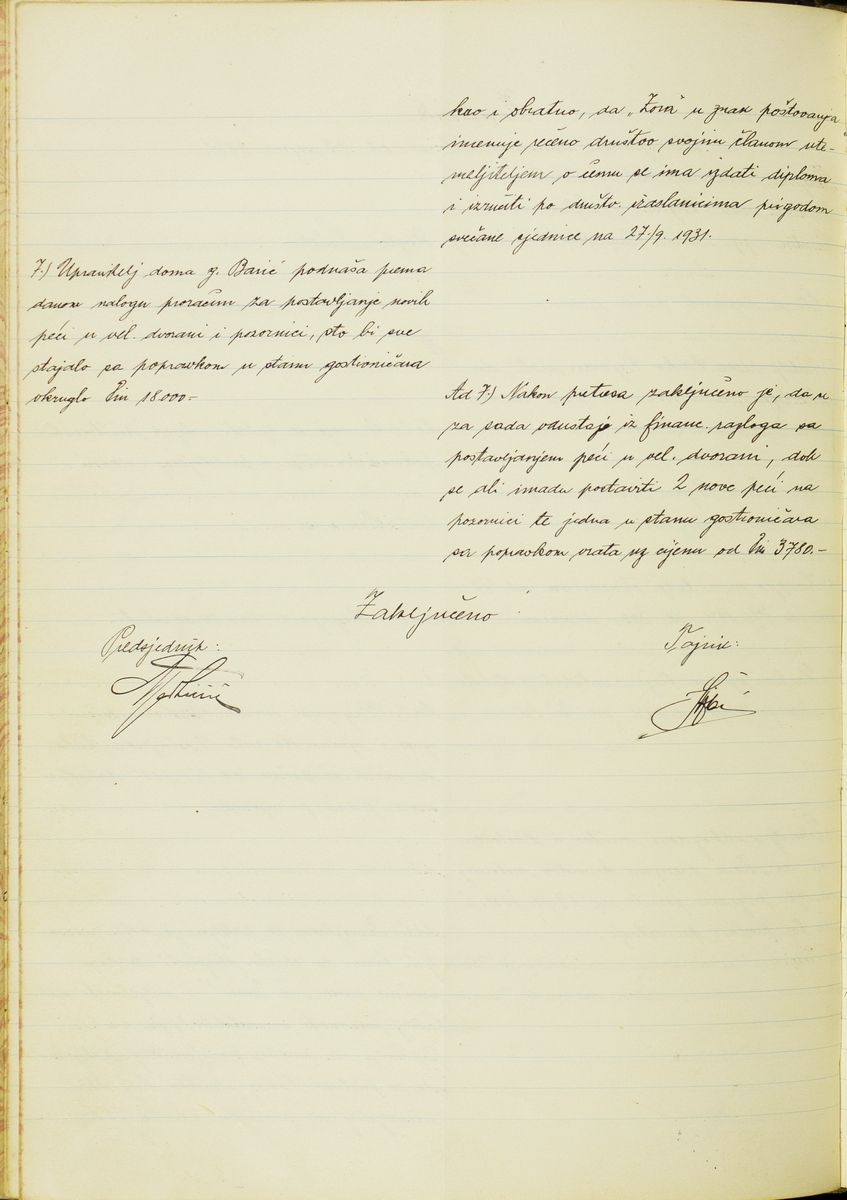 kao i obratno, da „Zora" u znak poštovanja
imenuje rečeno društvo svojim članom ute-
meljiteljem o čemu se ima izdati diploma
i izručiti po društv. izaslanicima prigodom
svečane sjednice na 27/9. 1931.
7.) Upravitelj doma g. Barić podnaša prema
danom nalogu proračun za postavljanje novih
peći u vel. dvorani i pozornici, što bi sve
stajalo sa popravkom u stanu gostioničara
okruglo Din 18.000.-
Ad 7.) Nakon pretresa zaključeno je, da se
za sada odustaje iz financ. razloga sa
postavljanjem peći u vel. dvorani, dok
se ali imadu postaviti 2 nove peći na
pozornici te jedna u stanu gostioničara
sa popravkom vrata uz cijenu od Din 3780.-
Zaključeno!
Predsjednik:
Tajnik: